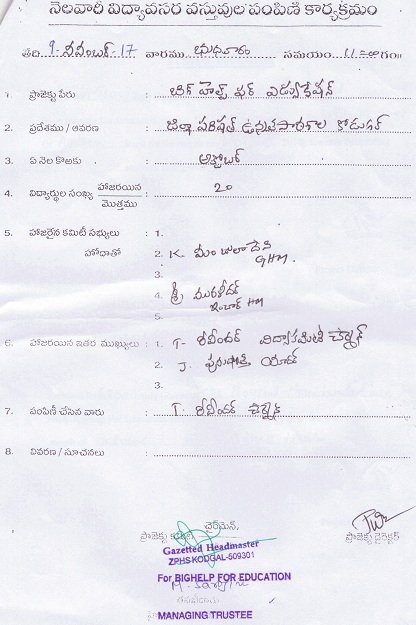 నెలవారీ విద్యావసర వస్తువుల పంపిణీ కార్యక్రమం
తేది 9-నవంబర్-17 వారము బుధవారం సమయం 11-00 గం॥
1. ప్రాజెక్టు పేరు : బిగ్ హెల్ప్ ఫర్ ఎడ్యుకేషన్
2. ప్రదేశము / ఆవరణ : జిల్లా పరిషత్ ఉన్నత పాఠశాల కోడంగల్
3. ఏ నెల కొఱకు : అక్టోబర్
4. విద్యార్థుల సంఖ్య హాజరయిన : 20
మొత్తము
5. హాజరైన కమిటీ సభ్యులు : 1.
హోదాతో 2. K. మంజులాదేవి
GHM.
3.
4. శ్రీ మురళీధర్
ఇంచార్జ్ HM
5.
6. హాజరయిన ఇతర ముఖ్యులు : 1. T. రవీందర్ విద్యాకమిటీ చైర్మన్
2. J. యాదవ్
3.
7. పంపిణీ చేసిన వారు : T. రవీందర్ చైర్మన్
8. వివరణ / సూచనలు :
చైర్మెన్,
ప్రాజెక్టు కమిటీ ప్రాజెక్టు డైరెక్టర్
Gazetted Headmaster
ZPHS KODGAL-509301
For BIGHELP FOR EDUCATION
MANAGING TRUSTEE